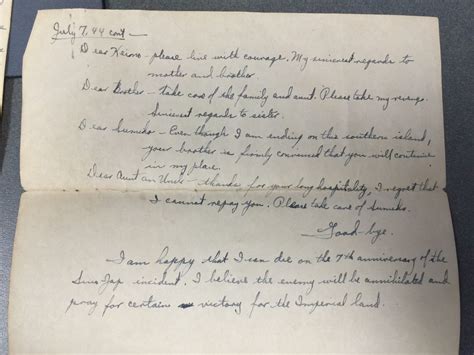 July 7, 44 cont —
Dear Keiono - please live with courage. My sincerest regards to
mother and brother.
Dear Brother - take care of the family and aunt. Please take my revenge.
Sincerest regards to sister.
Dear Sumiko - Even though I am ending on this southern island,
your brother is firmly convinced that you will continue
in my place.
Dear Aunt an Uncle - thanks for your long hospitality, I regret that
I cannot repay you. Please take care of Sumiko.
Good-bye.
I am happy that I can die on the 7th anniversary of the
Sino Jap incident. I believe the enemy will be annihilated and
pray for certain victory for the Imperial land.